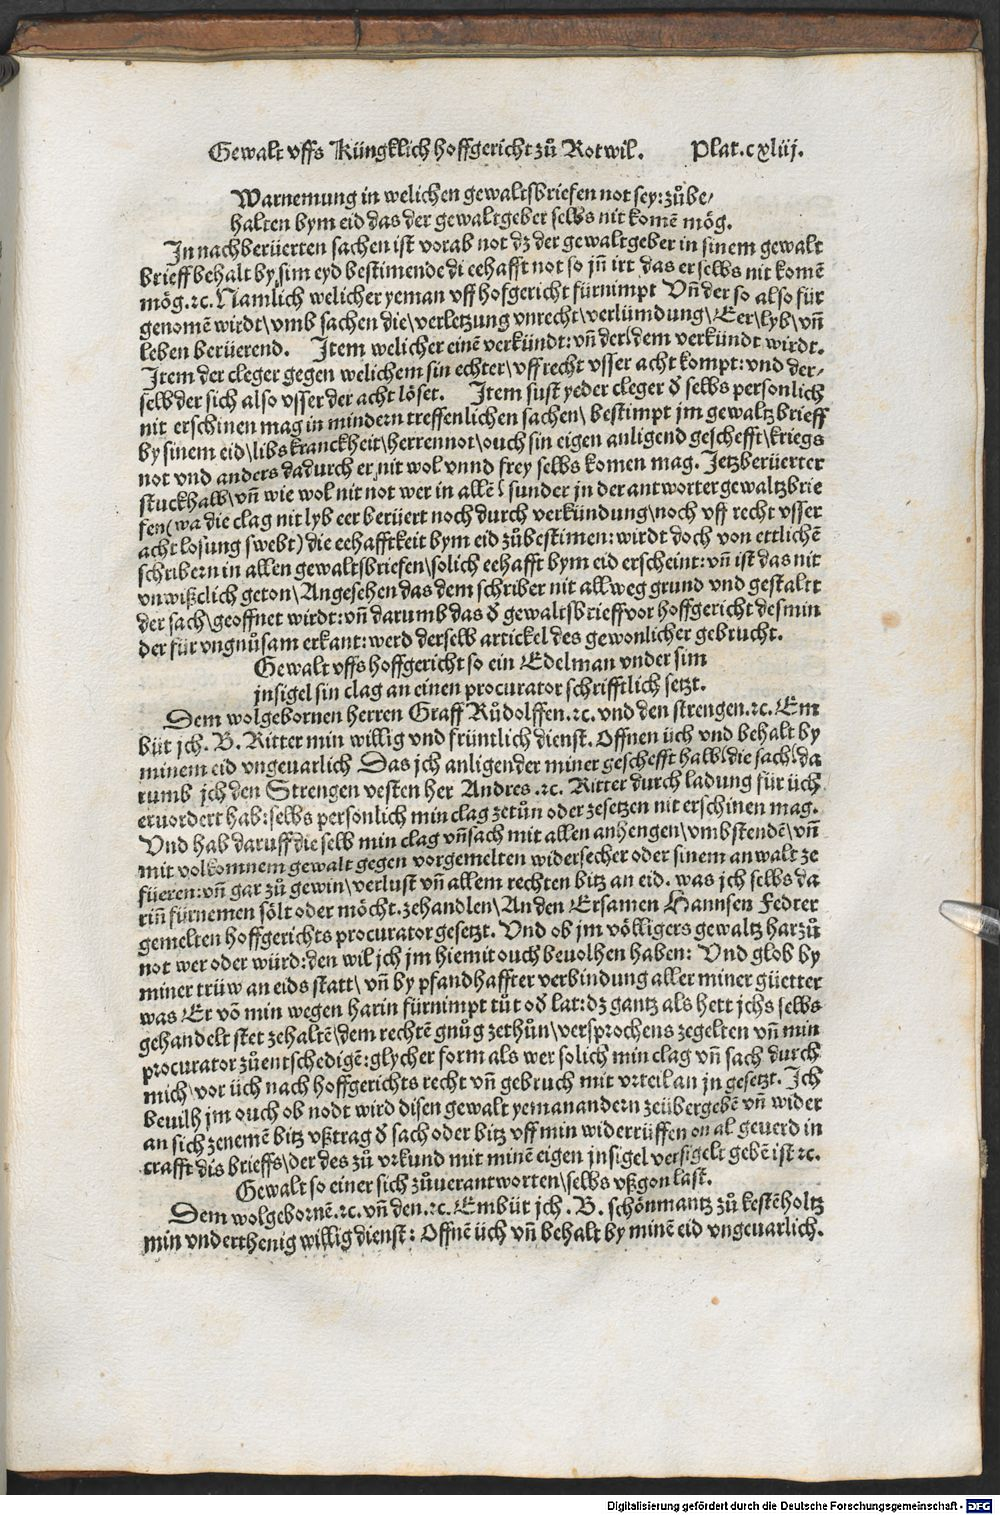 Gewalt vffs Küngklich hoffgericht zů Rotwil. Plat.cxliij.
Warnemung in welichen gewaltsbriefen not sey: zůbe/
halten bym eid das der gewaltgeber selbs nit komē mög.
In nachberüerten sachen ist vorab not dz der gewaltgeber in sinem gewalt
brieff behalt by sim eyd bestimende di eehafft not so jn̄ irt das er selbs nit komē
mög.⁊c. Namlich welicher yeman vff hofgericht fürnimpt Vn̄ der so also für
genomē wirdt\vmb sachen die\verletzung vnrecht\verlümdung\Eer\lyb\vn̄
leben berüerend. Item welicher einē verkündt: vn̄ der\dem verkündt wirdt.
Item der cleger gegen welichem sin echter\vff recht vsser acht kompt: vnd der/
selb der sich also vsser der acht löset. Item sust yeder cleger d̄ selbs personlich
nit erschinen mag in mindern treffenlichen sachen\ bestimpt jm gewaltz brieff
by sinem eid\libs kranckheit\herren not\ouch sin eigen anligend geschefft\kriegs
not vnd anders dadurch er nit wol vnnd frey selbs komen mag. Jetzberüerter
stuckhalb\vn̄ wie wol nit not wer in allē\sunder jn der antworter gewaltzbrie
fen(wa die clag nit lyb eer berüert noch durch verkündung\noch vff recht vsser
acht losung swebt) die eehafftkeit bym eid zůbestimen: wirdt doch von ettlichē
schribern in allen gewaltsbriefen\solich eehafft bym eid erscheint: vn̄ ist das nit
vnwißclich geton\Angesehen das dem schriber nit allweg grund vnd gestaltt
der sach\geoffnet wirdt: vn̄ darumb das d̄ gewaltsbrieff vor hoffgericht desmin
der für vngnůsam erkant: werd derselb artickel des gewonlicher gebrucht.
Gewalt vffs hoffgericht so ein Edelman vnder sim
jnsigel sin clag an einen procurator schrifftlich setzt.
Dem wolgebornen herren Graff Růdolffen.⁊c. vnd den strengen.⁊c. Em
büt jch. B. Ritter min willig vnd früntlich dienst. Offnen üch vnd behalt by
minem eid vngeuarlich Das jch anligender miner geschefft halb\die sach\da
rumb jch den Strengen vesten her Andres .⁊c. Ritter durch ladung für üch
eruordert hab: selbs persönlich min clag zetůn oder zesetzen nit erschinen mag.
Vnd hab daruff die selb min clag vn̄ sach mit allen anhengen\vmbstendē\vn̄
mit volkomnem gewalt gegen vorgemelten widersecher oder sinem anwalt ze
füeren: vn̄ gar zů gewin\verlust vn̄ allem rechten bitz an eid. was jch selbs da
rin̄ fürnemen sölt oder möcht.zehandlen\An den Ersamen Hannsen Fedrer
gemelten hoffgerichts procurator gesetzt. Vnd ob jm völligers gewaltz harzů
not wer oder würd: den wil jch jm hiemit ouch beuolhen haben: Vnd glob by
miner trüw an eids statt\ vn̄ by pfandhaffter verbindung aller miner güetter
was Er vō min wegen harin fürnimpt tůt od̄ lat: dz gantz als hett jchs selbs
gehandelt stet zehaltē\dem rechtē gnůg zethůn\versprochens zegelten vn̄ min
procurator zůentschedigē: glycher form als wer solich min clag vn̄ sach durch
mich\vor üch nach hoffgerichts recht vn̄ gebruch mit vrteil an jn gesetzt. Ich
beuilh jm ouch ob nodt wird disen gewalt yeman andern zeübergebē vn̄ wider
an sich zenemē bitz vßtrag d̄ sach oder bitz vff min widerrüffen on al geuerd in
crafft dis brieffs\der des zů vrkund mit minē eigen jnsigel versigelt gebē ist ⁊c.
Gewalt so einer sich zůuerantworten\selbs vßgon last.
Dem wolgebornē.⁊c. vn̄ den.⁊c. Embüt jch .B. schönmantz zů kestēholtz
min vnderthenig willig dienst: Offnē üch vn̄ behalt by minē eid vngeuarlich.
Digitalisierung gefördert durch die Deutsche Forschungsgemeinschaft - DFG